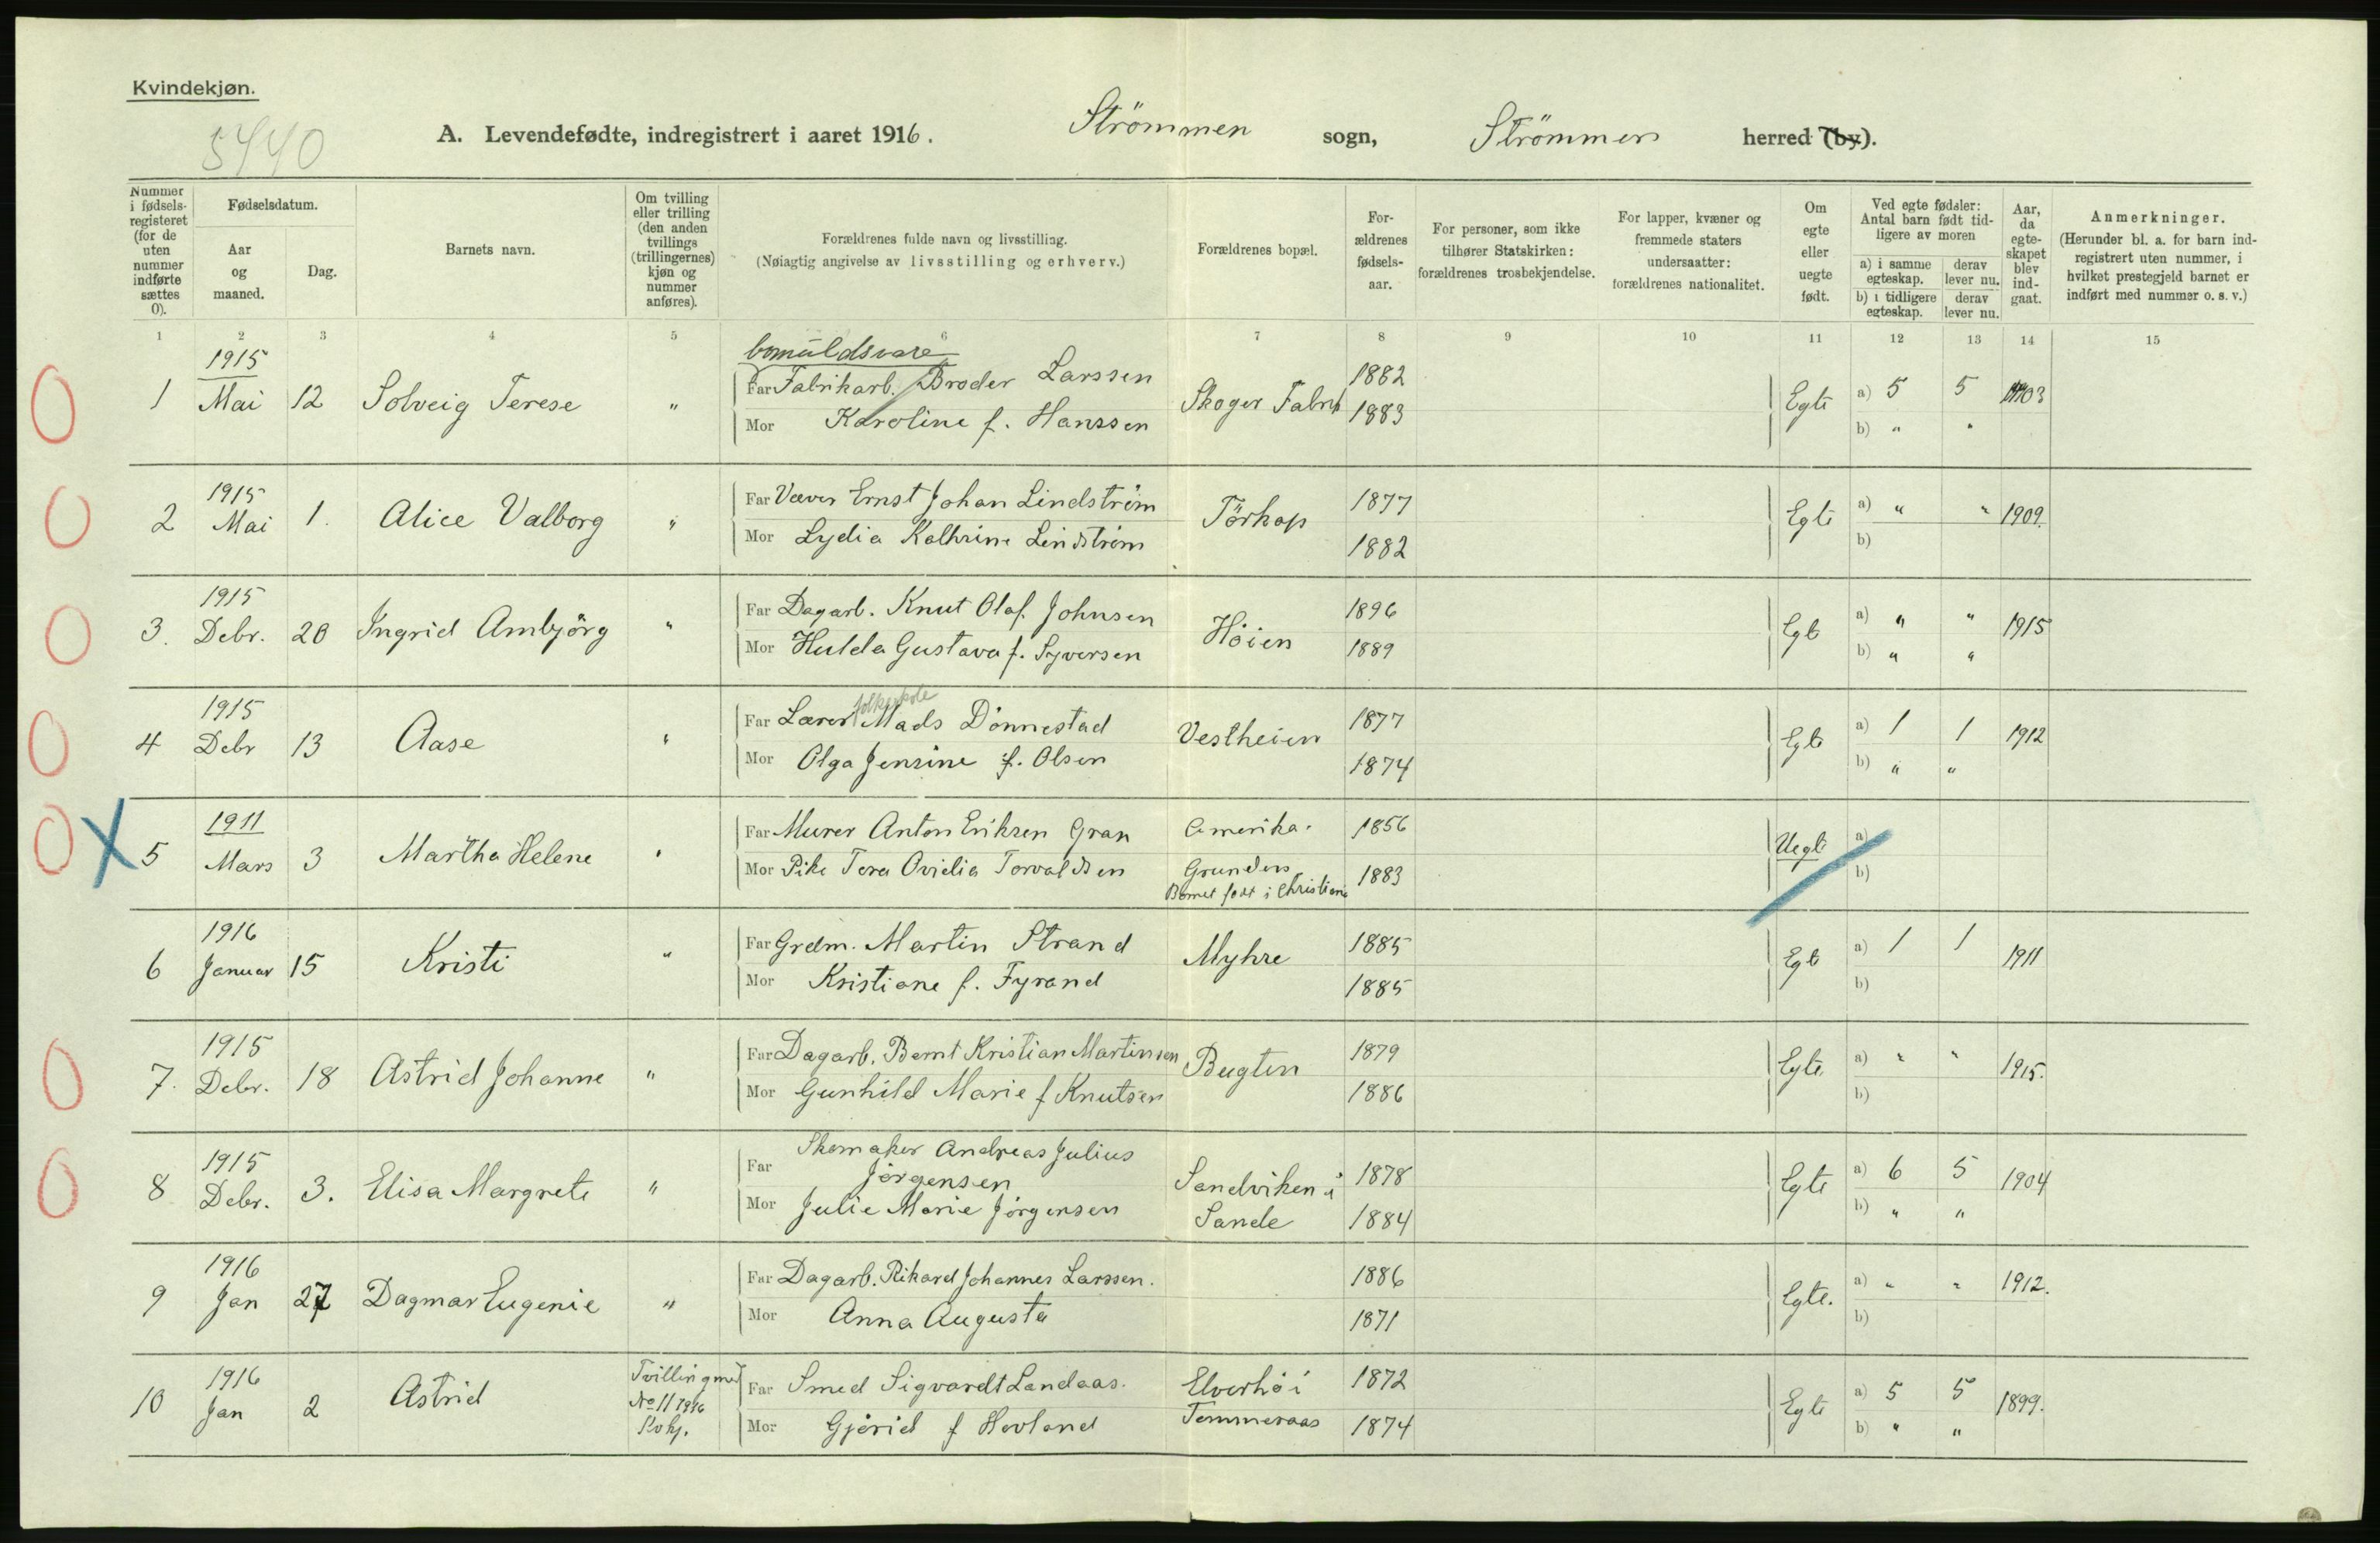 Kvindekjøn.
5440
A. Levendefødte, indregistrert i aaret 1916. Strömmen sogn, Strömmen herred (by).
Nummer i fødselsregisteret (for de uten nummer indførte sættes 0).
Fødselsdatum.
Aar og maaned.
Dag.
Barnets navn.
Om tvilling eller trilling (den anden tvillings (trillingernes) kjøn og nummer anføres).
Forældrenes fulde navn og livsstilling.
(Nøiagtig angivelse av livsstilling og erhverv.)
Forældrenes bopæl.
Forældrenes fødselsaar.
For personer, som ikke tilhører Statskirken: forældrenes trosbekjendelse.
For lapper, kvæner og fremmede staters undersaatter: forældrenes nationalitet.
Om egte eller uegte født.
Ved egte fødsler: Antal barn født tidligere av moren
a) i samme egteskap. derav lever nu.
b) i tidligere egteskap. derav lever nu.
Aar, da egteskapet blev indgaat.
Anmerkninger.
(Herunder bl. a. for barn indregistrert uten nummer, i hvilket prestegjeld barnet er indført med nummer o. s. v.)
1 2 3 4 5 6 7 8 9 10 11 12 13 14 15
bomuldsvare
1 1915 Mai 12 Solveig Terese " Far Fabrikarb. Broder Larssen Skoger Fabrik 1882 Egte a) 5 5 1903
Mor Karoline f. Hanssen 1883 b) " "
2 1915 Mai 1. Alice Valborg " Far Væver Ernst Johan Lindström Törkop 1877 Egte a) " " 1909.
Mor Lydia Kathrine Lindström 1882 b)
3. 1915 Debr. 20 Ingrid Ambjörg " Far Dagarb. Knut Olaf Johnsen Höien 1896 Egte a) " " 1915
Mor Hulda Gustava f. Syversen 1889 b) " "
folkeskole
4 1915 Debr 13 Aase " Far Lærer Mads Dönnestad Vestheien 1877 Egte a) 1 1 1912
Mor Olga Jensine f. Olsen 1874 b) " "
5 1911 Mars 3 Martha Helene " Far Murer Anton Eriksen Gran Amerika. 1856 Uegte a)
Mor Pike Tora Ovidia Torvaldsen Grunden 1883 b)
Barnet født i Christiania
6 1916 Januar 15 Kristi " Far Grdm. Martin Strand Myhre 1885 Egte a) 1 1 1911
Mor Kristiane f. Fyrand 1885 b)
7. 1915 Debr. 18 Astrid Johanne " Far Dagarb. Bernt Kristian Martinsen Bugten 1879 Egte a) " " 1915.
Mor Gunhild Marie f Knutsen 1886 b)
8 1915 Debr. 3. Elisa Margrete " Far Skomaker Andreas Julius Jörgensen Sandviken i Sande 1878 Egte a) 6 5 1904
Mor Julie Marie Jörgensen 1884 b) " "
9 1916 Jan 27 Dagmar Eugenie " Far Dagarb. Rikard Johannes Larssen. 1886 Egte. a) " " 1912.
Mor Anna Augusta 1871 b)
10 1916 Jan 2 Astrid Tvilling med No 11 1916 Far Smed Sigvardt Landaas. Elverhöi 1872 Egte a) 5 5 1899.
Mor Gjörid f Hovland Temmeraas 1874 b) " "